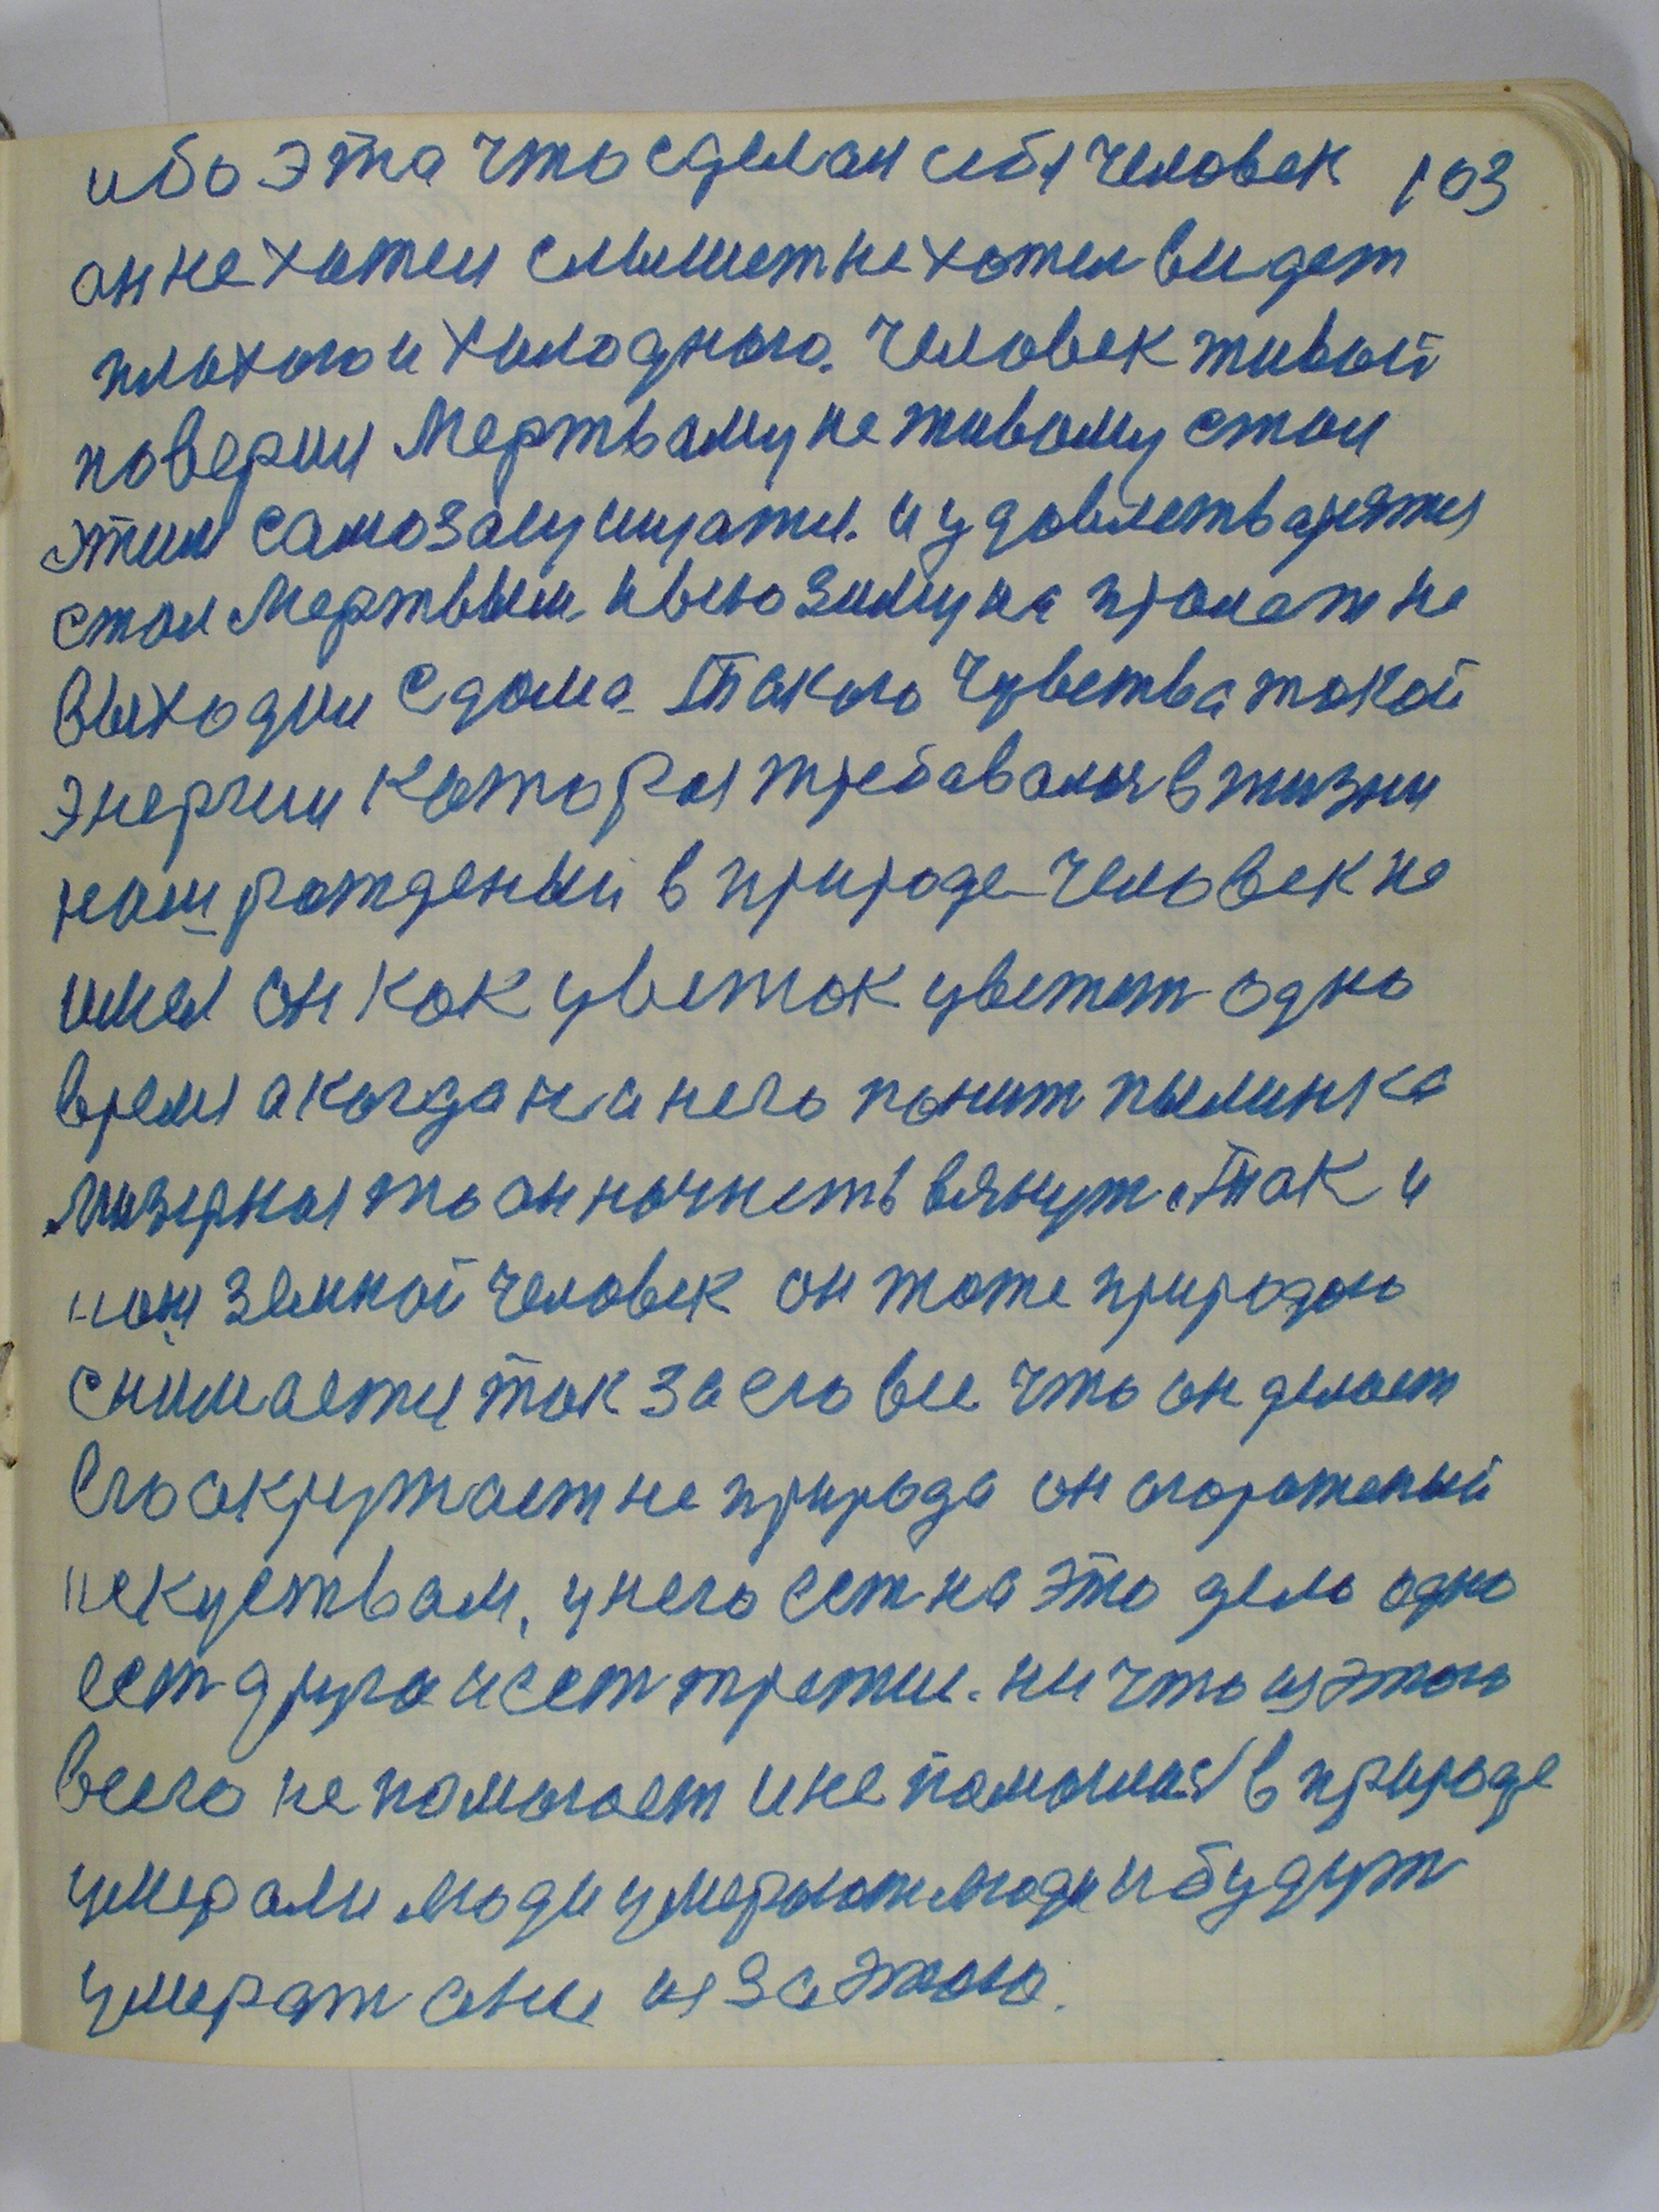 ибо эта что сделал себя человек 103
он не хотел слышет не хотел видет
плохого и холодного. Человек живой
поверил мертвому не живому стал
этим самозащищатся. и удовлетварятся
стал мертвым и всю зиму на пролет не
выходил с дома. Такого чувства такой
энергии которая требавалася в жизни
наш рожденый в природе человек не
имел он как цветок цветет одно
время а когда на него  пылинка
мизерная то он начнеть вянут. Так и
наш земной человек он тоже природою
снимается так за его все что он делает
его окружает не природа он огороженый
искуством, у него ест на это дело одно
ест друга и ест третие. ни что из этого
всего не помогает и не помогла в природе
умерали люди умерают люди и будут
умерат они из за этого.